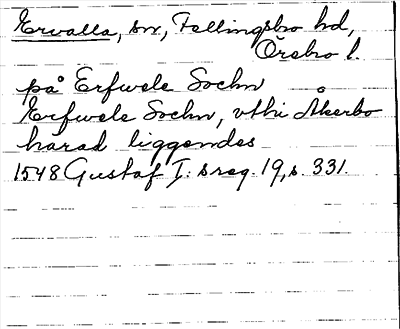 Ervalla, sn, Fellingsbro hd,
Örebro l.
på Erfwele Sochn
Erfwele Sochn, vthi Åkerbo
härad liggendes
1548 Gustaf I:s reg. 19, s. 331.